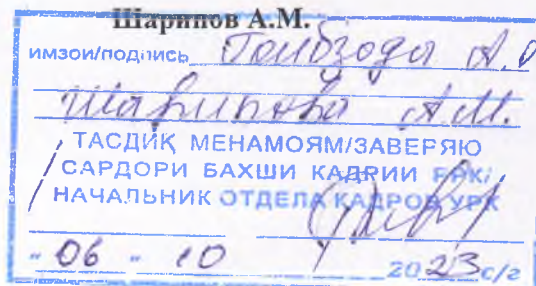 Шарипов А.М.
имзои/подпись Гоибзода А.
Шарипова А.М.
ТАСДИҚ МЕНАМОЯМ/ЗАВЕРЯЮ
САРДОРИ БАХШИ КАДРИИ РРК/
НАЧАЛЬНИК ОТДЕЛА КАДРОВ УРК
"06 " 10 2023 с/г